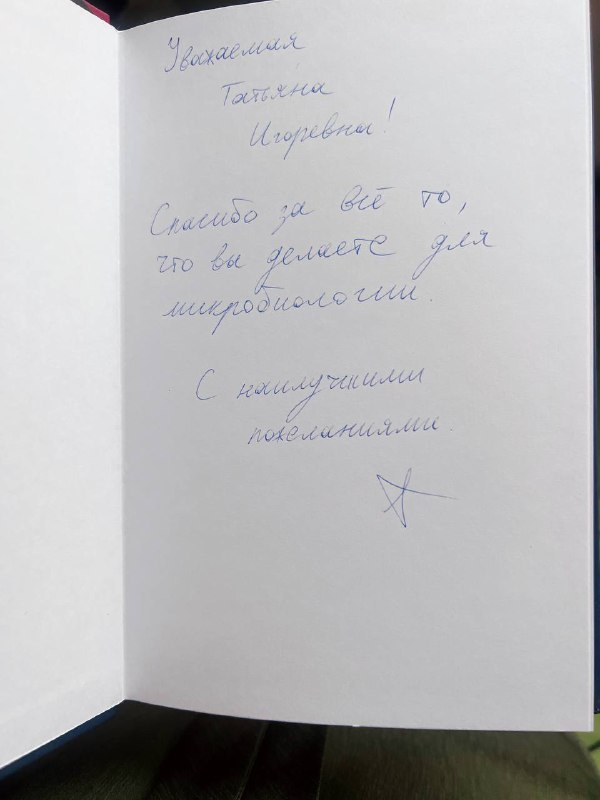 Уважаемая
Татьяна
Игоревна!
Спасибо за всё то,
что вы делаете для
микробиологии.
С наилучшими
пожеланиями.